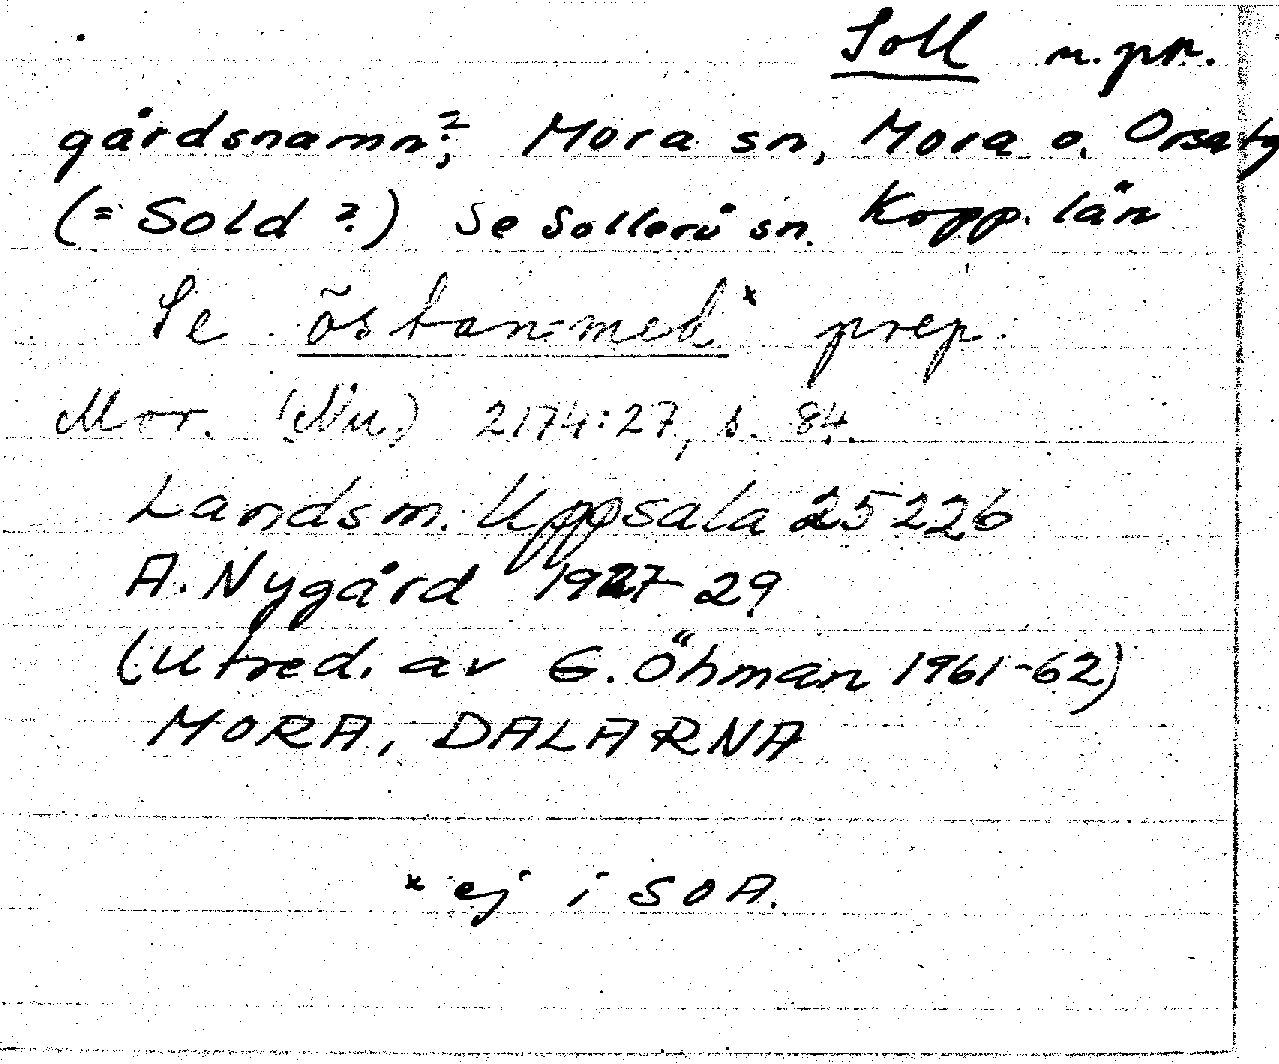 Soll n. pr.
gårdsnamn?, Mora sn, Mora o. Orsa tg
(= Sold ?) Se Sollerö sn. Kopp. län
Se östan-med* prep.
Mor. (Nu) 2174:27, s. 84.
Landsm. Uppsala 25226
A. Nygård 1927-29
(utred. av G. Öhman 1961-62)
MORA, DALARNA
* ej i SOA.